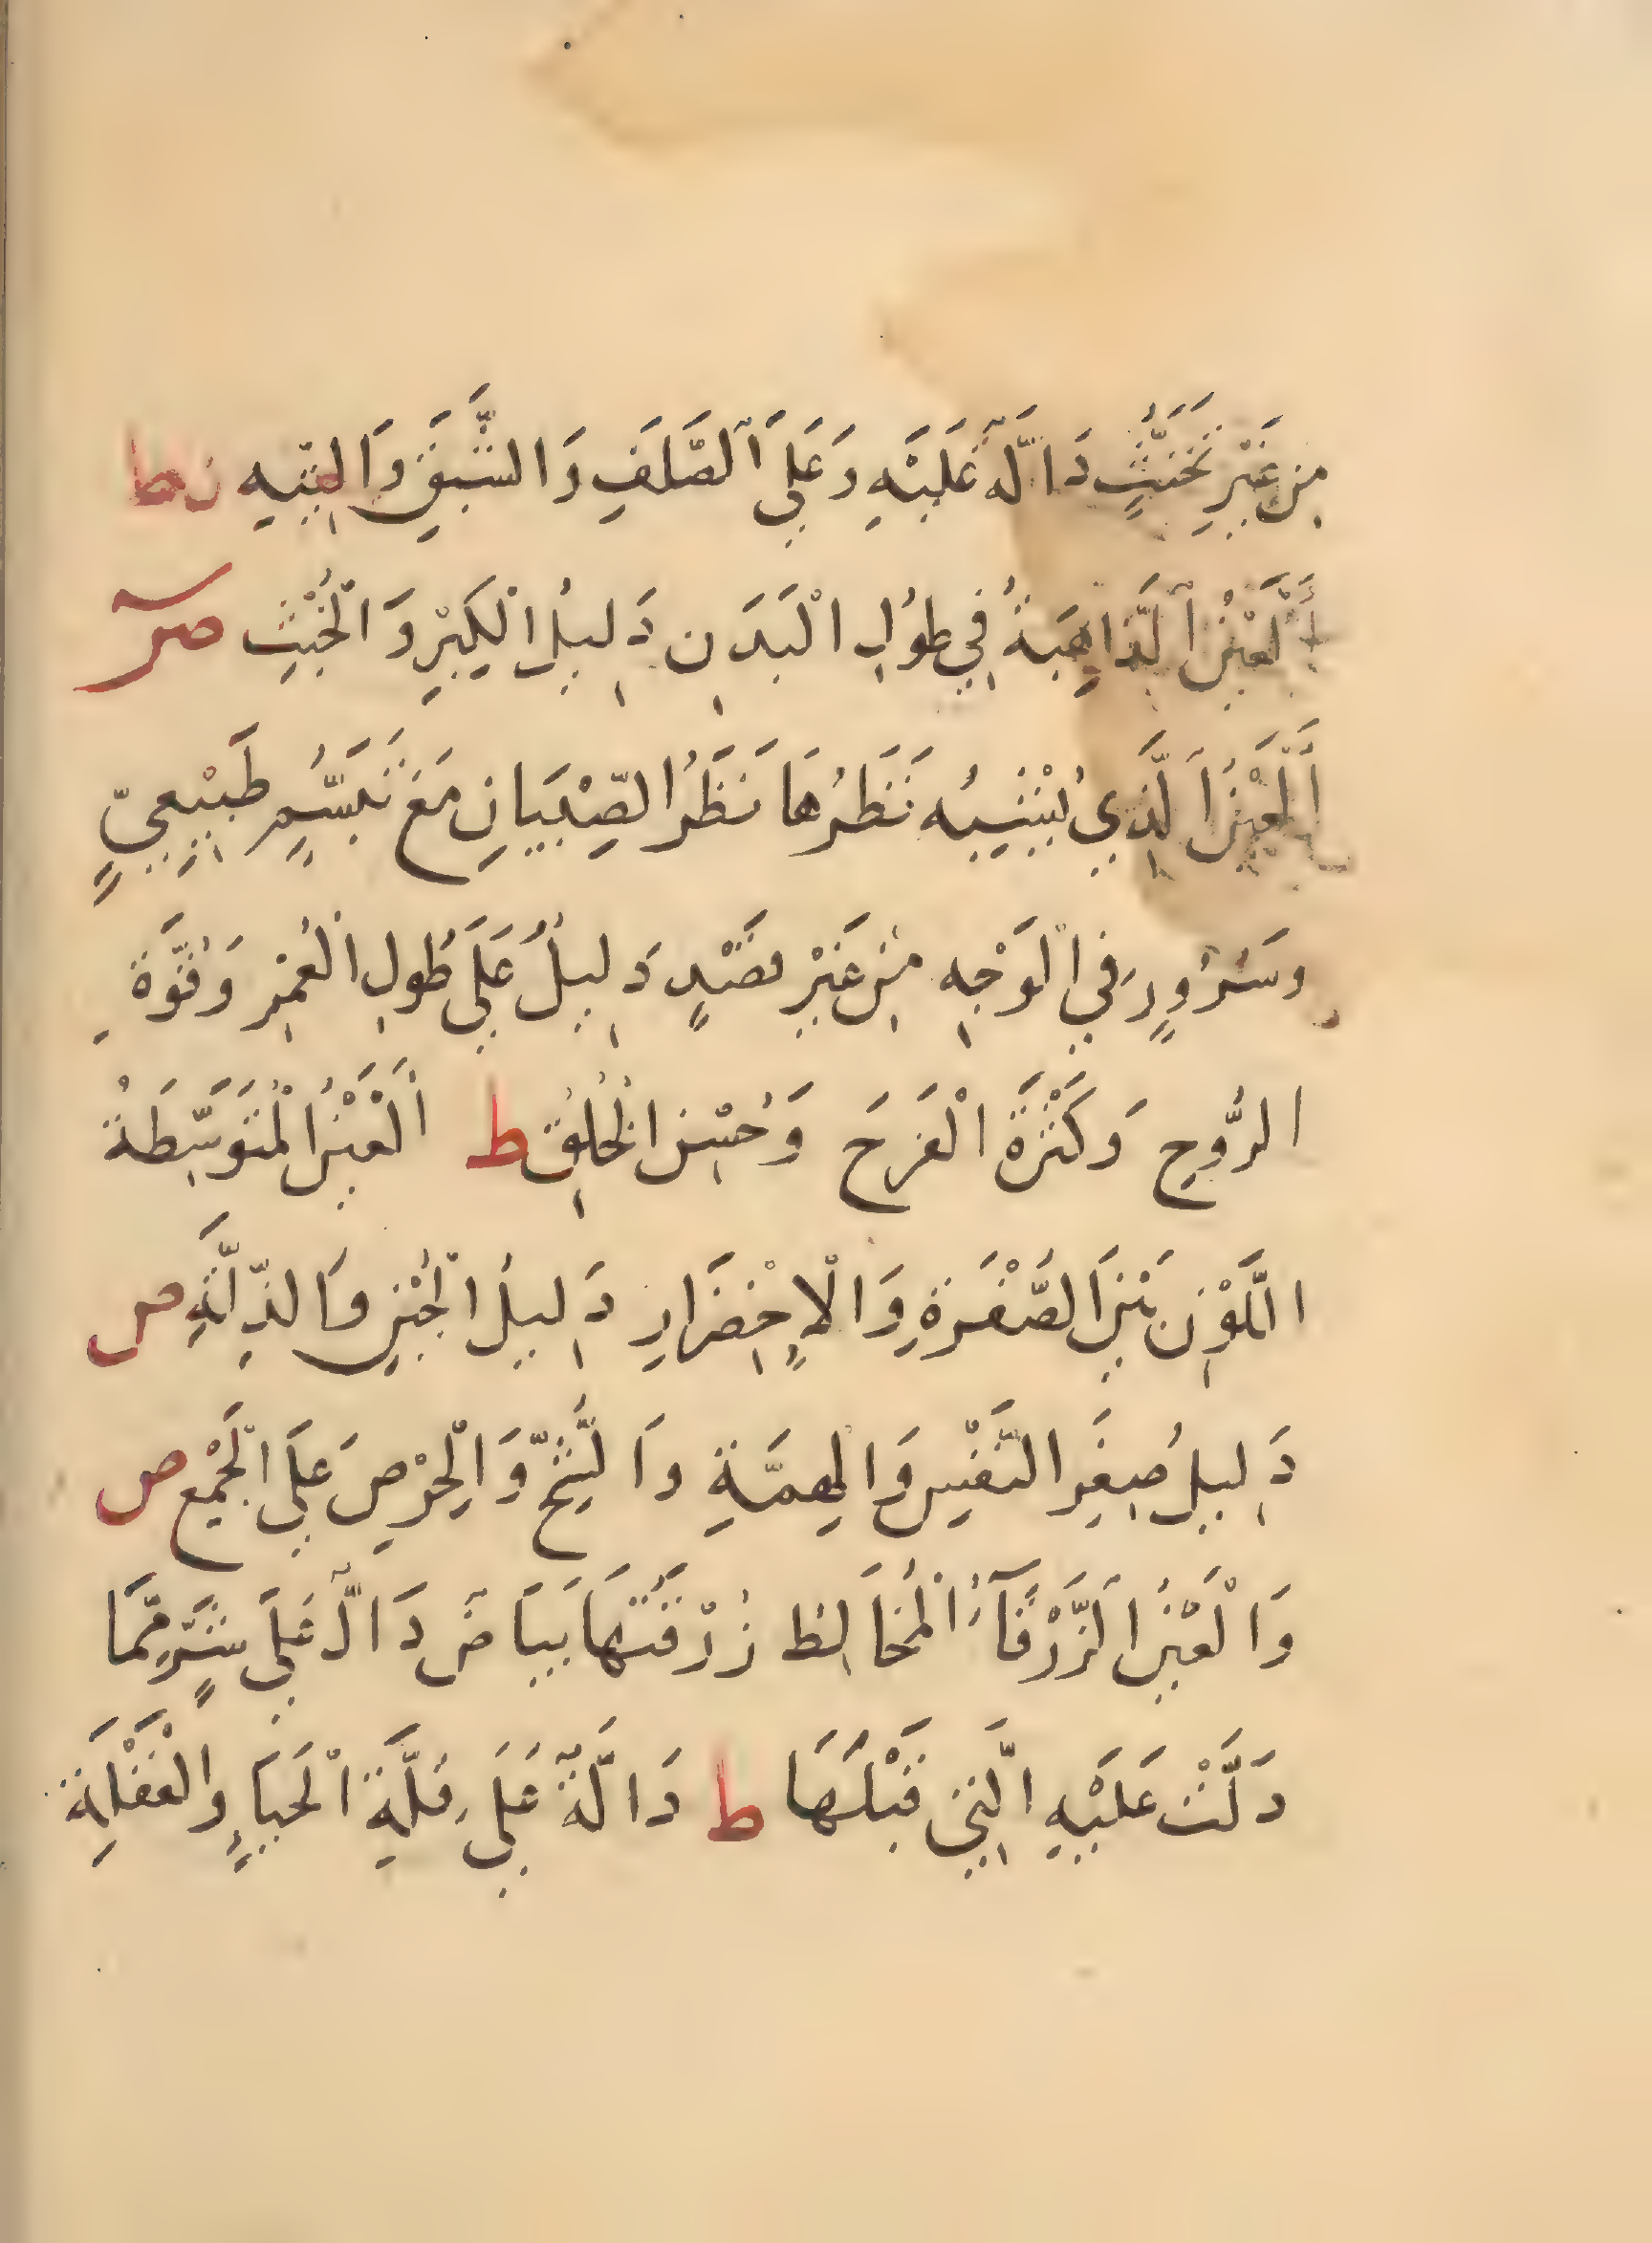 مِن غَيْرِ تَخَنُّثٍ دَالَّةٌ عَلَيْهِ وَعَلَى الصَّلَفِ وَالشَّبَقِ وَالتِّيهِ ن ط
أَلْعَيْنُ الذَّاهِبَةُ فِي طُولِ الْبَدَنِ دَلِيلُ الْكِبْرِ وَالْخُبْثِ صر
أَلْعَيْنُ الَّذِي يُشْبِهُ نَظَرُهَا نَظَرُ الصِّبْيَانِ مَعَ تَبَسُّمٍ طَبِيعِيٍّ
وسُرُورٍ فِي الْوَجْهِ مِن غَيْرِ قَصْدٍ دَلِيلٌ عَلَى طُولِ الْعُمْرِ وَقُوَّةِ
الرُّوحِ وَكَثْرَةَ الْفَرَحَ وَحُسْنِ الْخُلُقِ ط أَلْعَيْنُ الْمُتَوَسِّطَةُ
اللَّوْنِ بَيْنَ الصُّفْرَةِ وَالْإِخْضَرَارِ دَلِيلُ الْجُبْنِ وَالذِّلَّةِ ص
دَلِيلُ صِغَرِ النَّفْسِ وَالْهِمَّةِ وَالشُّحِّ وَالْحِرْصَ عَلَى الْجَمْعِ ص
وَالْعَيْنُ الزَّرْقَآءُ الْمُخَالِط زُرْقَتُهَا بَيَاضٌ دَالٌّ عَلَى شَرٍّ مِمَّا
دَلَّتْ عَلَيْهِ الَّتِي قَبْلَهَا ط دَالَّةٌ عَلَى قِلَّةِ الْحَيَاءِ وَالْغَفْلَةِ